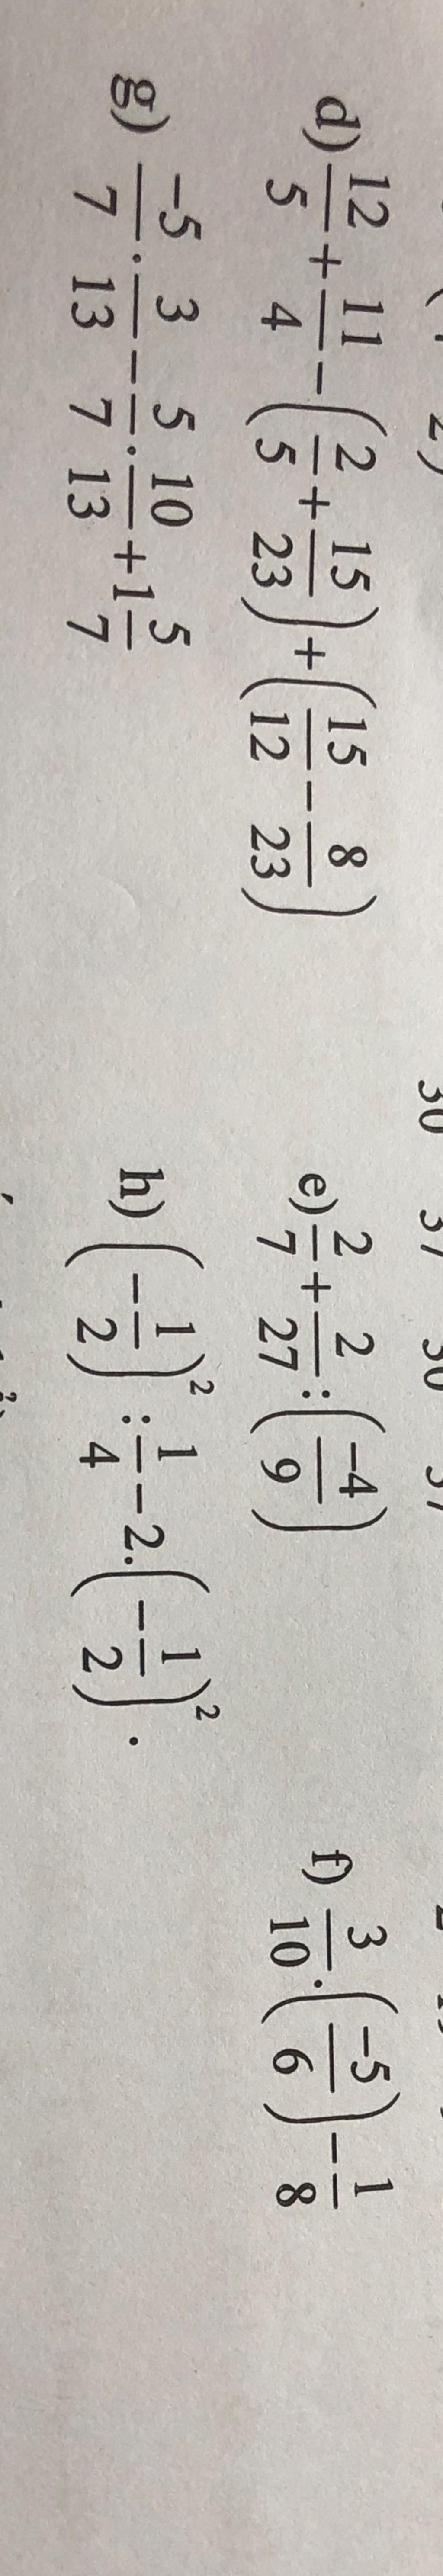 d) 12/5 + 11/4 − (2/5 + 15/23) + (15/12 − 8/23) e) 2/7 + 2/27 : (−4/9) f) 3/10 . (−5/6) − 1/8
g) −5/7 . 3/13 − 5/7 . 10/13 + 1 5/7 h) (−1/2)² : 1/4 − 2. (−1/2)² .